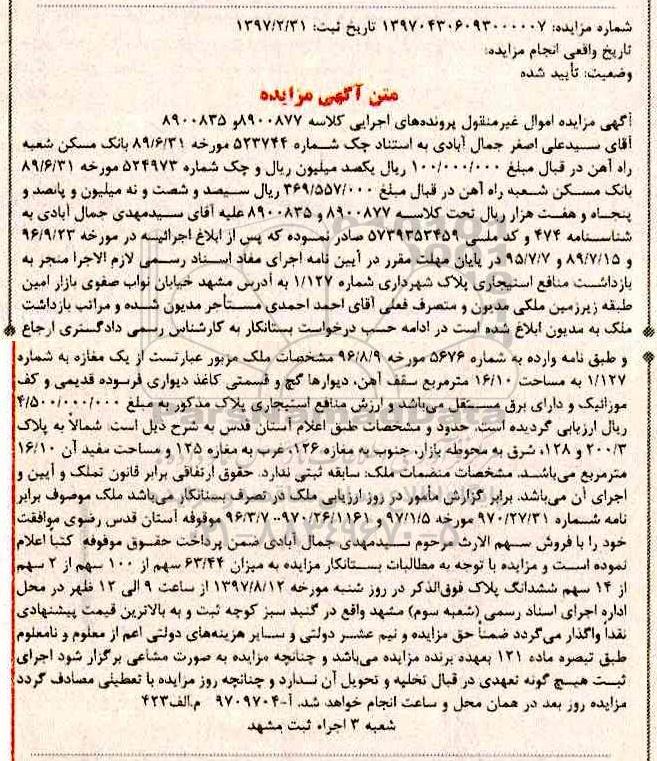 شماره مزایده: ۱۳۹۷۰۴۳۰۶۰۹۳۰۰۰۰۰۷ تاریخ ثبت: ۱۳۹۷/۲/۳۱
تاریخ واقعی انجام مزایده:
وضعیت: تأیید شده
متن آگهی مزایده
آگهی مزایده اموال غیرمنقول پرونده‌های اجرایی کلاسه ۸۹۰۰۸۷۷و ۸۹۰۰۸۳۵
آقای سیدعلی اصغر جمال آبادی به استناد چک شماره ۵۲۳۷۴۴ مورخه ۸۹/۶/۳۱ بانک مسکن شعبه
راه آهن در قبال مبلغ ۱۰۰/۰۰۰/۰۰۰ ریال یکصد میلیون ریال و چک شماره ۵۲۴۹۷۳ مورخه ۸۹/۶/۳۱
بانک مسکن شعبه راه آهن در قبال مبلغ ۳۶۹/۵۵۷/۰۰۰ ریال سیصد و شصت و نه میلیون و پانصد و
پنجاه و هفت هزار ریال تحت کلاسه ۸۹۰۰۸۷۷ و ۸۹۰۰۸۳۵ علیه آقای سیدمهدی جمال آبادی به
شناسنامه ۴۷۴ و کد ملی ۵۷۳۹۳۵۳۴۵۹ صادر نموده که پس از ابلاغ اجرائیه در مورخه ۹۶/۹/۲۳
و ۸۹/۷/۱۵ و ۹۵/۷/۷ در پایان مهلت مقرر در آیین نامه اجرای مفاد اسناد رسمی لازم الاجرا منجر به
بازداشت منافع استیجاری پلاک شهرداری شماره ۱/۱۲۷ به آدرس مشهد خیابان نواب صفوی بازار امین
طبقه زیرزمین ملکی مدیون و متصرف فعلی آقای احمد احمدی مستأجر مدیون شده و مراتب بازداشت
ملک به مدیون ابلاغ شده است در ادامه حسب درخواست بستانکار به کارشناس رسمی دادگستری ارجاع
و طبق نامه وارده به شماره ۵۶۷۶ مورخه ۹۶/۸/۹ مشخصات ملک مزبور عبارتست از یک مغازه به شماره
۱/۱۲۷ به مساحت ۱۶/۱۰ مترمربع سقف آهن، دیوارها گچ و قسمتی کاغذ دیواری فرسوده قدیمی و کف
موزائیک و دارای برق مستقل می‌باشد و ارزش منافع استیجاری پلاک مذکور به مبلغ ۴/۵۰۰/۰۰۰/۰۰۰
ریال ارزیابی گردیده است. حدود و مشخصات طبق اعلام آستان قدس به شرح ذیل است: شمالاً به پلاک
۲۰۰/۳ و ۱۲۸، شرق به محوطه بازار، جنوب به مغازه ۱۲۶، غرب به مغازه ۱۲۵ و مساحت مفید آن ۱۶/۱۰
مترمربع می‌باشد. مشخصات منضمات ملک: سابقه ثبتی ندارد. حقوق ارتفاقی برابر قانون تملک و آیین و
اجرای آن می‌باشد. برابر گزارش مأمور در روز ارزیابی ملک در تصرف بستانکار می‌باشد ملک موصوف برابر
نامه شماره ۹۷۰/۲۷/۳۱ مورخه ۹۷/۱/۵ و ۹۷۰۰/۲۶/۱۱۶۱ ۹۶/۳/۷ موقوفه آستان قدس رضوی موافقت
خود را با فروش سهم الارث مرحوم سیدمهدی جمال آبادی ضمن پرداخت حقوق موقوفه کتباً اعلام
نموده است و مزایده با توجه به مطالبات بستانکار مزایده به میزان ۶۳/۴۴ سهم از ۱۰۰ سهم از ۲ سهم
از ۱۴ سهم ششدانگ پلاک فوق‌الذکر در روز شنبه مورخه ۱۳۹۷/۸/۱۲ از ساعت ۹ الی ۱۲ ظهر در محل
اداره اجرای اسناد رسمی (شعبه سوم) مشهد واقع در گنبد سبز کوچه ثبت و به بالاترین قیمت پیشنهادی
نقداً واگذار می‌گردد ضمناً حق مزایده و نیم عشر دولتی و سایر هزینه‌های دولتی اعم از معلوم و نامعلوم
طبق تبصره ماده ۱۲۱ بعهده برنده مزایده می‌باشد و چنانچه مزایده به صورت مشاعی برگزار شود اجرای
ثبت هیچ گونه تعهدی در قبال تخلیه و تحویل آن ندارد و چنانچه روز مزایده با تعطیلی مصادف گردد
مزایده روز بعد در همان محل و ساعت انجام خواهد شد. آ-۹۷۰۹۷۰۴ م.الف۴۲۳
شعبه ۳ اجراء ثبت مشهد